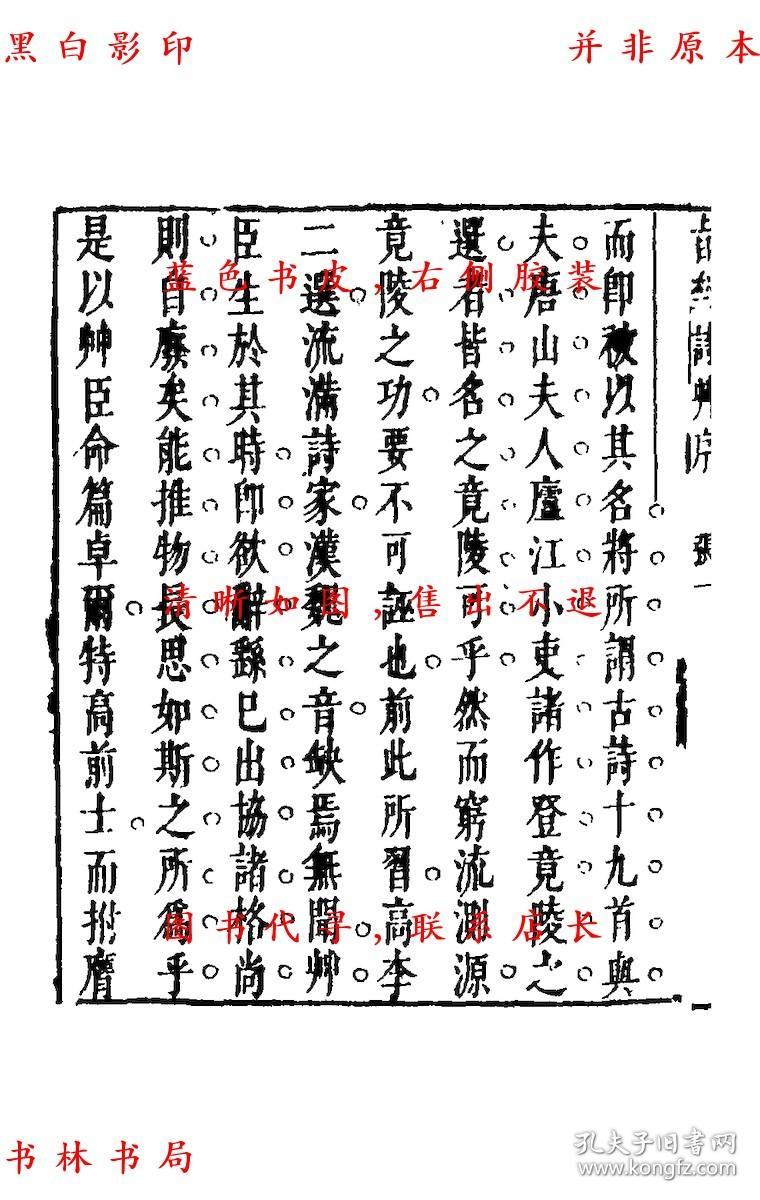 黑白影印
并非原本
詩艸序
而卽被以其名將所謂古詩十九首與
夫唐山夫人廬江小吏諸作登竟陵之
選者皆名之竟陵可乎然而窮流測源
竟陵之功要不可誣也前此所習高李
二選流滿詩家漢魏之音缺焉無聞艸
臣生於其時卽欲辭繇巳出協諸格尚
則自廢矣能推物長思如斯之所爲乎
是以艸臣命篇卓爾特高前士而拊膺
蓝色书皮,右侧胶装
清晰如图,售出不退
图书代寻,联系店长
书林书局
孔夫子旧书网
www.kongfz.com